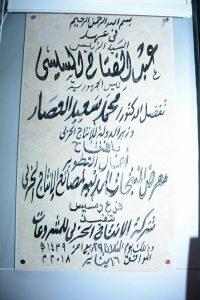 بسم الله الرحمن الرحيم
في عهد
السيد الرئيس
عبد الفتاح السيسي
رئيس الجمهورية
تفضل الدكتور / محمد سعيد العصار
وزير الدولة للإنتاج الحربي
بافتتاح
أعمال التطوير
معرض المنتجات المدنية لمصانع الإنتاج الحربي
فرع رمسيس
تنفيذ
شركة الإنتاج الحربي للمشروعات
وذلك يوم الثلاثاء ٢٩ ربيع آخر ١٤٣٩ هـ
الموافق ١٦ يناير ٢٠١٨ م